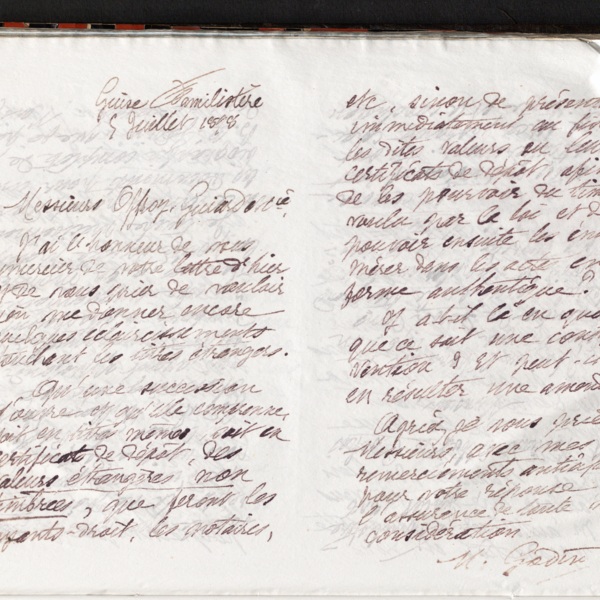 Guise Familistère
5 Juillet 1878.
Messieurs Offroy, Guiard & Cie,
J'ai l'honneur de vous
remercier de votre lettre d'hier
et de vous prier de vouloir
bien me donner encore
quelques éclaircissements
touchant les titres étrangers.
Qu'une succession
s'ouvre et qu'elle comprenne,
soit en titres mêmes, soit en
certificat de dépôt, des
valeurs étrangères non
timbrées, que feront les
ayants-droit, les notaires,
etc, sinon de présenter
immédiatement au
les dites valeurs ou leur
certificats de dépôt, afin
de les pourvoir du
voulu par la loi et de
pouvoir ensuite les
mérer dans les actes en
forme authentique?
Y a-t-il là en quoi
que ce soit une contra
vention? Et peut-il
en résulter une amende
Agréez je vous prie
Messieurs, avec mes
remerciements
pour votre réponse
l'assurance de toute
considération.
Godin